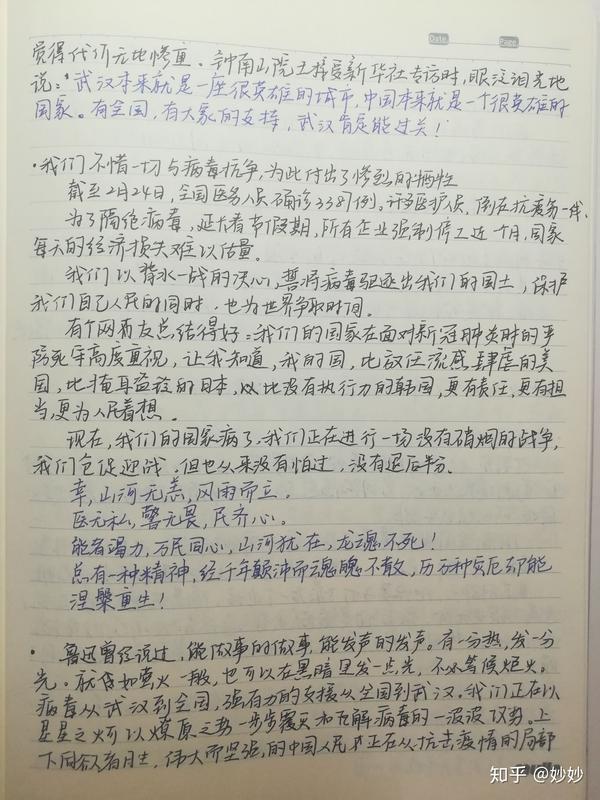 Date.
Page
觉得代价无比惨重。钟南山院士接受新华社专访时,眼泛泪光地
说:“武汉本来就是一座很英雄的城市,中国本来就是一个很英雄的
国家。有全国,有大家的支持,武汉肯定能过关!
·我们不惜一切与病毒抗争,为此付出了惨烈的牺牲
截至2月24日,全国医务人员确诊3387例。许多医护人员,倒在抗疫第一线。
为了隔绝病毒,延长春节假期,所有企业强制停工近一月,国家
每天的经济损失难以估量。
我们以背水一战的决心,誓将病毒驱逐出我们的国土,保护
我们自己人民的同时,也为世界争取时间。
有个网友总结得好:我们的国家在面对新冠肺炎时的严
防死守高度重视,让我知道,我的国,比放任流感肆虐的美
国,比掩耳盗铃的日本,以比没有执行力的韩国,更有责任,更有担
当,更为人民着想。
现在,我们的国家病了,我们正在进行一场没有硝烟的战争,
我们仓促迎战,但也从来没有怕过,没有退后半分。
幸,山河无恙,风雨而立。
医无私,警无畏,民齐心。
能者竭力,万民同心,山河犹在,龙魂不死!
总有一种精神,经千年颠沛而魂魄不散,历万种灾厄却能
涅槃重生!
·鲁迅曾经说过,能做事的做事,能发声的发声。有一分热,发一分
光。就令如萤火一般,也可以在黑暗里发一点光,不必等候炬火。
病毒从武汉到全国,强有力的支援从全国到武汉。我们正在以
星星之火可以燎原之势一步步覆灭和瓦解病毒的一波波攻势。上
下同欲者胜,伟大而坚强的中国人民正在从抗击疫情的局部
知乎 @妙妙